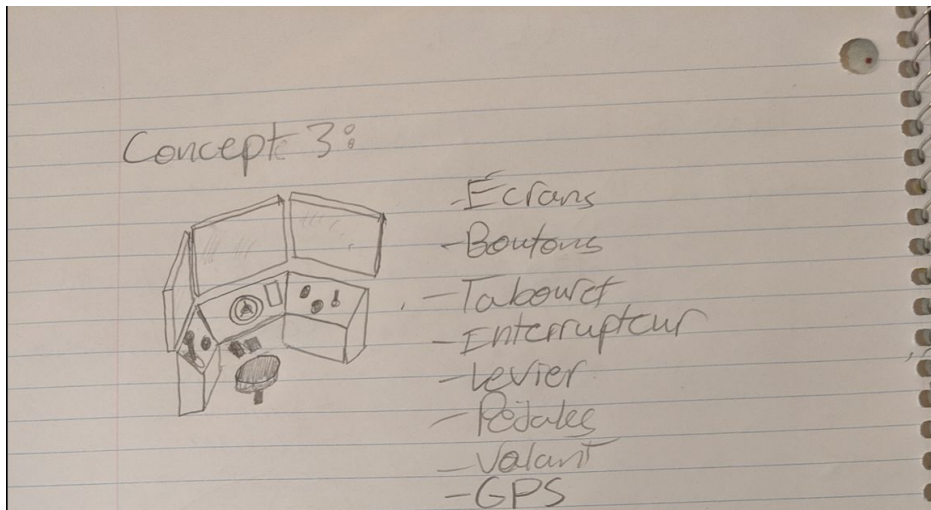 Concept 3:
- Écrans
- Boutons
- Tabouret
- Interrupteur
- Levier
- Pédales
- Volant
- GPS